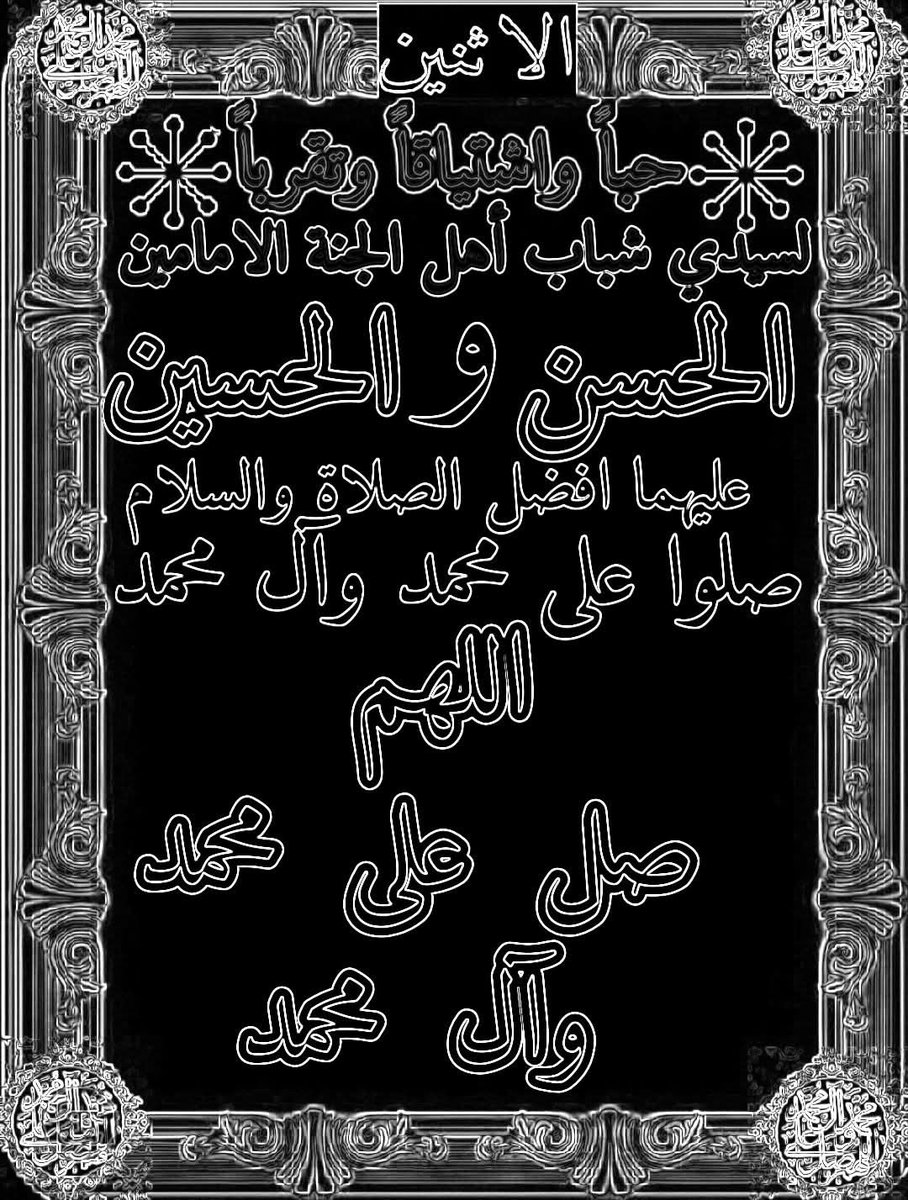 الاثنين
حباً واشتياقاً وتقرباً
لسيدي شباب أهل الجنة الامامين
الحسن و الحسين
عليهما افضل الصلاة والسلام
صلوا على محمد وآل محمد
اللهم
صل على محمد
وآل محمد